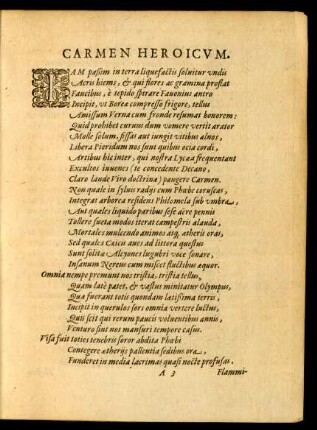 CARMEN HEROICVM.
IAM passim in terra liquefactis soluitur vndis
Acris hiems, & qui flores ac gramina prostat
Faucibus, è tepido spirare Fauonius antro
Incipit, vt Borea compresso frigore, tellus
Amissum Verna cum fronde resumat honorem:
Quid prohibet curuus dum vomere vertit arator
Molle solum, fissas aut iungit vitibus alnos,
Libera Pieridum nos sunt quibus ocia cordi,
Artibus hic inter, qui nostra Lycæa frequentant
Excultos iuuenes (te concedente Decano,
Claro laude Viro doctrina) pangere Carmen.
Non quale in syluis radijs cum Phœbe coruscas,
Integrat arborea residens Philomela sub vmbra,
Aut quales liquido paribus sese aëre pennis
Tollere sueta modos iterat campestris alauda,
Mortales mulcendo animos atq, ætheris oras,
Sed quales Caicis aues ad littora questus
Sunt solitæ Alcyones lugubri voce sonare,
Insanum Nereus cum miscet fluctibus æquor.
Omnia nempe premunt nos tristia, tristia tellus,
Quam latè patet, & vastus minitatur Olympus,
Qua fuerant totis quondam latissima terris,
Incipit in querulos sors omnia vertere luctus,
Quis scit qui rerum paucis voluentibus annis,
Venturo sint nos mansuri tempore casus.
Visa fuit toties tenebris soror abdita Phœbi
Contegere ætherijs pallentia sedibus ora,
Funderet in media lacrimas quasi nocte profusas,
A 3 Flammi-